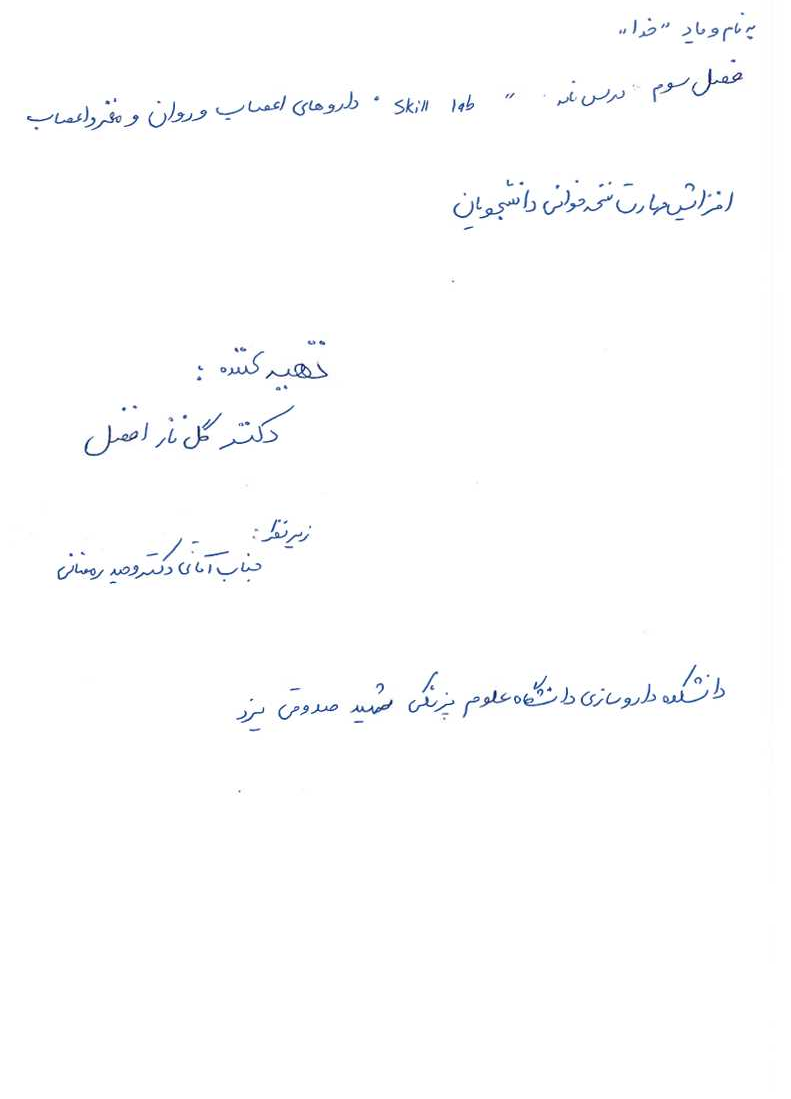 به نام و یاد "خدا"
فصل سوم درس نامه " Skill lab " داروهای اعصاب و روان و مغز و اعصاب
افزایش مهارت نسخه خوانی دانشجویان
تهیه کننده :
دکتر گل ناز افضل
زیر نظر :
جناب آقای دکتر وحید رمضانی
دانشکده داروسازی دانشگاه علوم پزشکی شهید صدوقی یزد